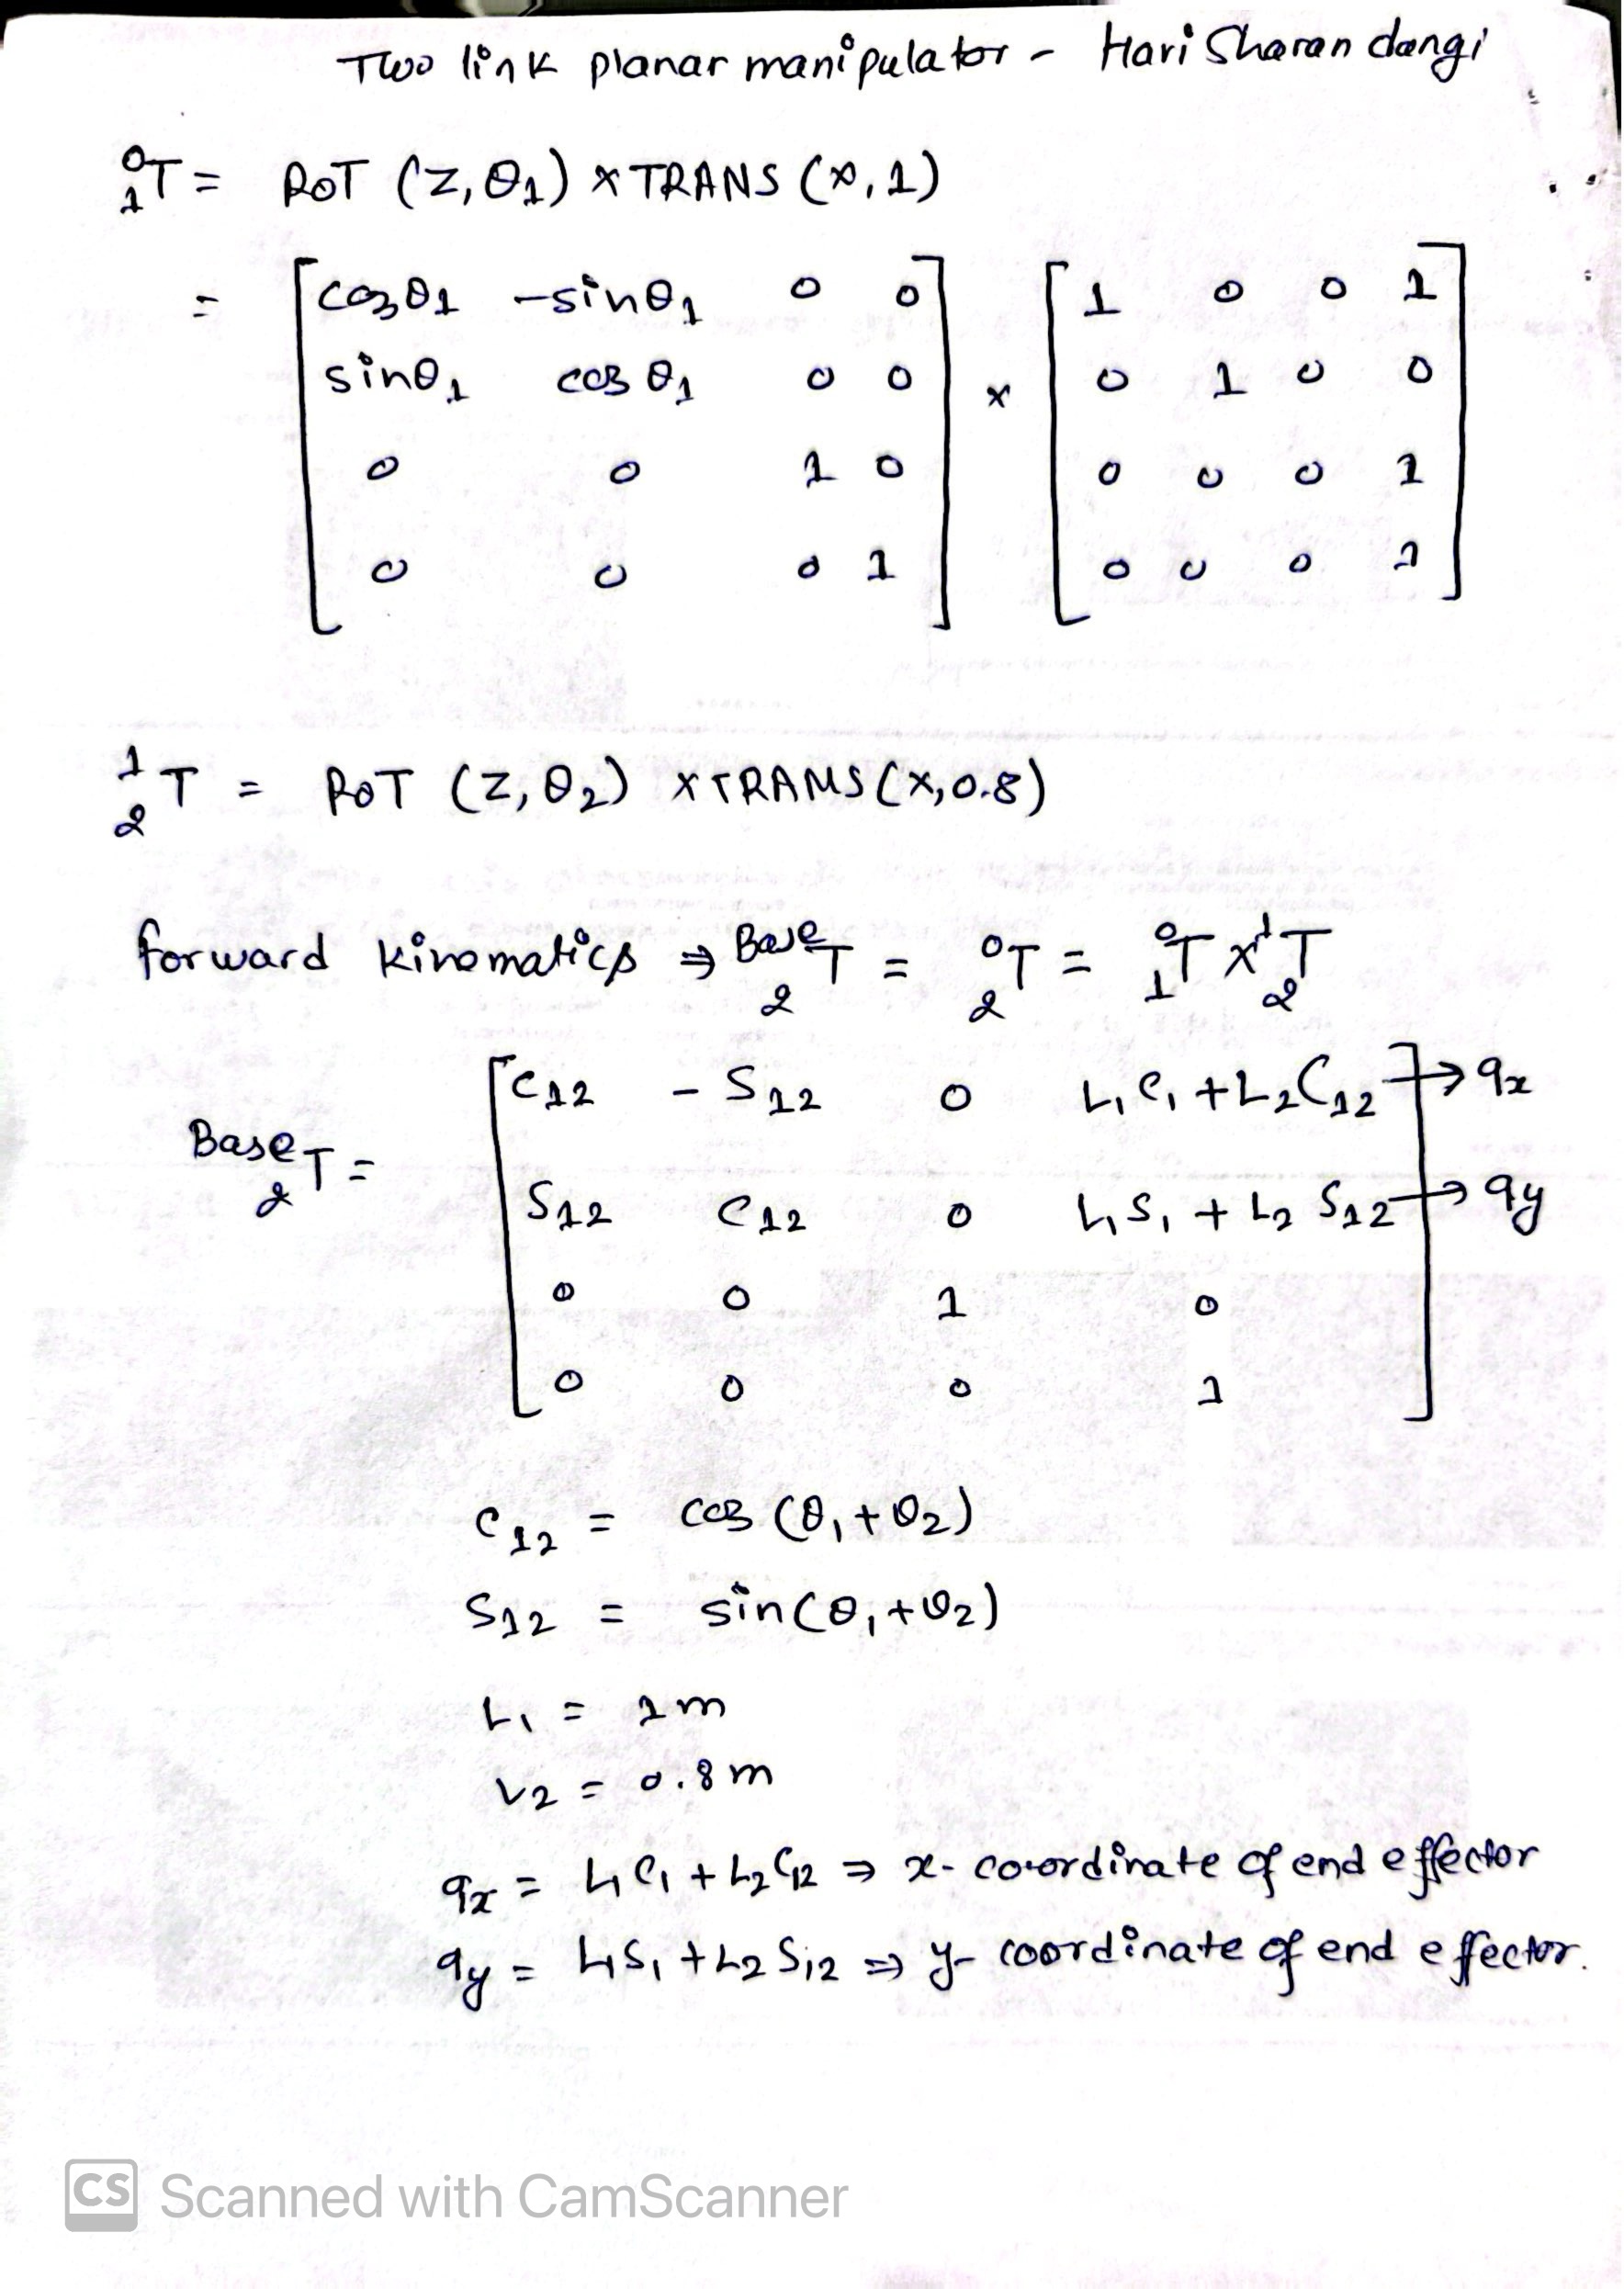 Two link planar manipulator - Hari Sharan dangi
⁰₁T = ROT (Z, θ1) x TRANS (x, 1)
= [cosθ1 -sinθ1 0 0] x [1 0 0 1]
[sinθ1 cosθ1 0 0] [0 1 0 0]
[0 0 1 0] [0 0 0 1]
[0 0 0 1] [0 0 0 1]
¹₂T = ROT (Z, θ2) x TRANS (x, 0.8)
forward kinematics ⇒ Base₂T = ⁰₂T = ⁰₁T x ¹₂T
Base₂T = [C12 -S12 0 L1C1 + L2C12] → qx
[S12 C12 0 L1S1 + L2 S12] → qy
[0 0 1 0]
[0 0 0 1]
C12 = cos (θ1 + θ2)
S12 = sin (θ1 + θ2)
L1 = 1m
L2 = 0.8m
qx = L1C1 + L2C12 ⇒ x- co-ordinate of end effector
qy = L1S1 + L2 S12 ⇒ y- coordinate of end effector.
CS Scanned with CamScanner